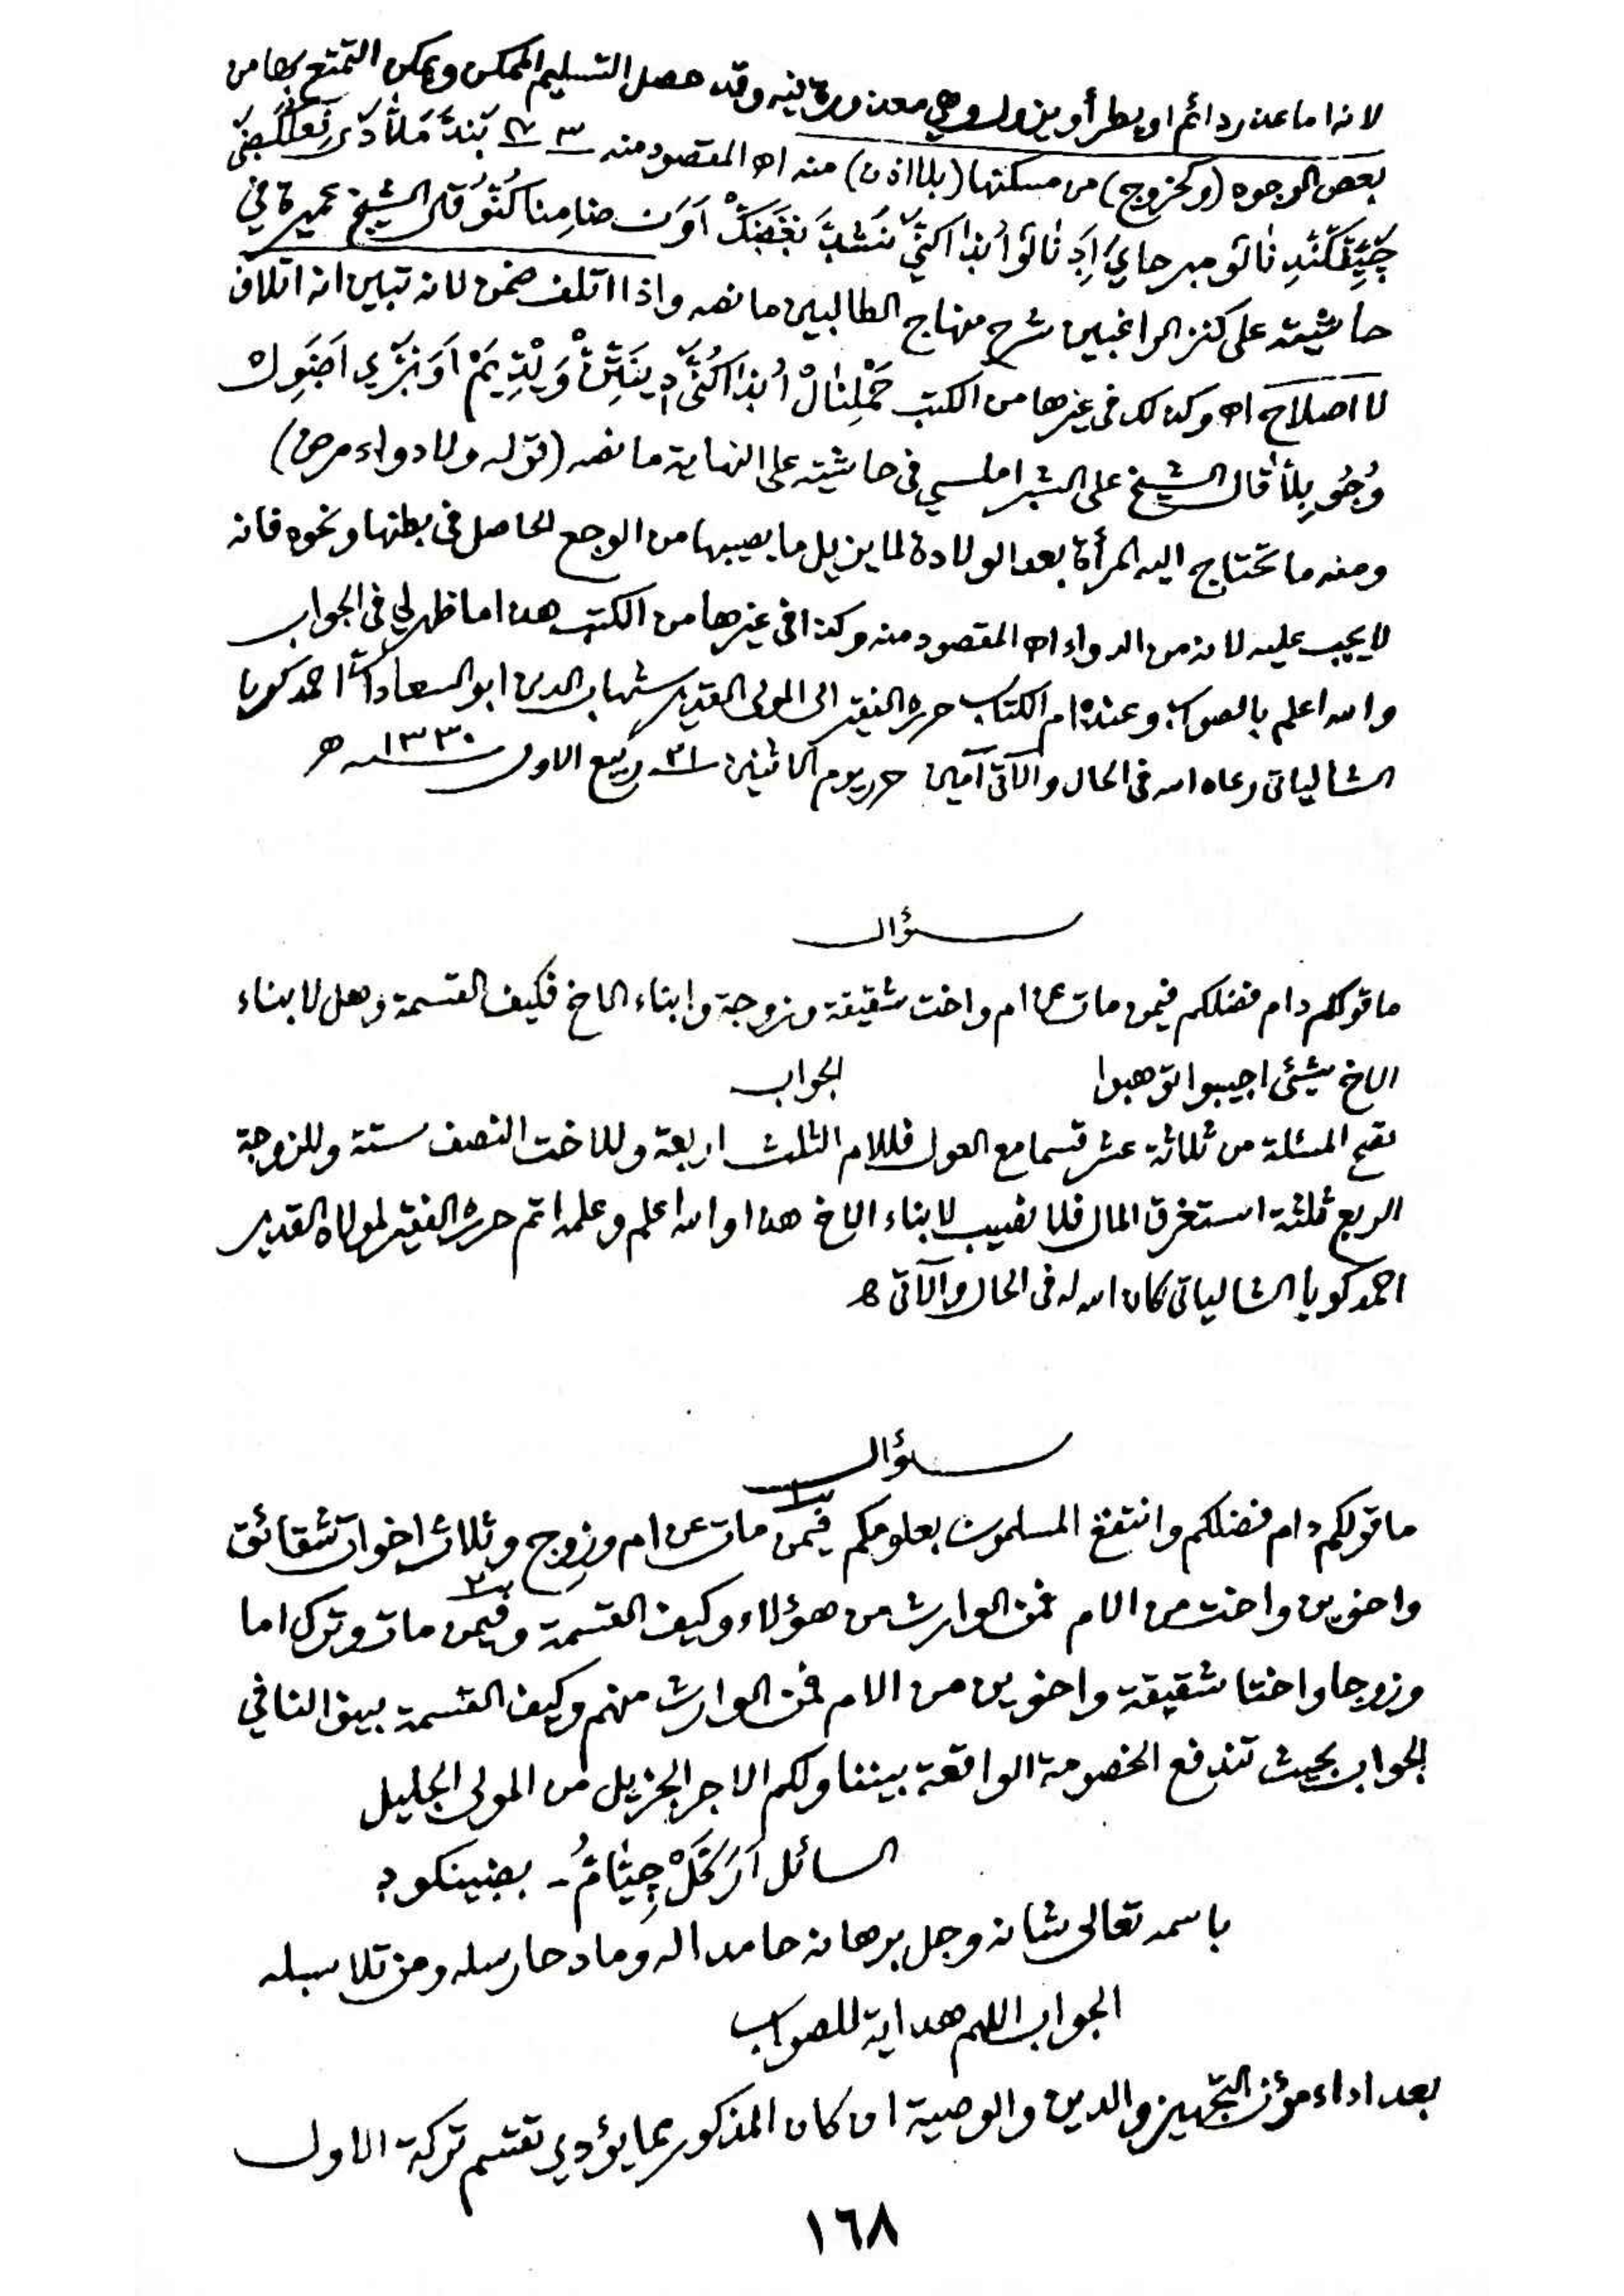 لانه اما عذر دائم او يطرأ ويزول وهي معذورة فيه وقد حصل التسليم الممكن ويمكن التمتع بها من
بعض الوجوه (وكخروج) من مسكنها (بلا اذن) منه اه المقصود منه
قال الشيخ عميرة في
حاشيته على كنز الراغبين شرح منهاج الطالبين ما نصه واذا اتلف ضمن لانه تبين انه اتلاف
لا اصلاح اه وكذلك في غيرها من الكتب
قال الشيخ على الشبراملسي في حاشيته على النهاية ما نصه (قوله ولا دواء مرض)
ومنه ما تحتاج اليه المرأة بعد الولادة لما يزيل ما يصيبها من الوجع الحاصل في بطنها ونحوه فانه
لا يجب عليه لانه من الدواء اه المقصود منه وكذا في غيرها من الكتب هذا ما ظهر لي في الجواب
والله اعلم بالصواب وعنده ام الكتاب حرره الفقير الى المولى القدير شهاب الدين ابو السعادات احمد كويا
الشالياتي رعاه الله في الحال والآتي آمين حرر يوم الاثنين ٢١ ربيع الاول سنه ١٣٣٠ ھ
سؤال
ما قولكم دام فضلكم فيمن مات عن ام واخت شقيقة وزوجة وابناء الاخ فكيف القسمة وهل لابناء
الاخ شيئ اجيبوا توهبوا الجواب
تصح المسئلة من ثلاثة عشر قسما مع العول فللام الثلث اربعة وللاخت النصف ستة وللزوجة
الربع ثلثة استغرق المال فلا نصيب لابناء الاخ هذا والله اعلم وعلمه اتم حرره الفقير لمولاه القدير
احمد كويا الشالياتي كان الله له في الحال والآتي ه
سؤال
ما قولكم دام فضلكم وانتفع المسلمون بعلومكم فيمن مات عن ام وزوج وثلاث اخوات شقائق
واخوين واخت من الام فمن الوارث من هؤلاء وكيف القسمة وفيمن مات وترك اما
وزوجا واختا شقيقة واخوين من الام فمن الوارث منهم وكيف القسمة بينوا لنا في
الجواب بحيث تندفع الخصومة الواقعة بيننا ولكم الاجر الجزيل من المولى الجليل
السائل
باسمه تعالى شانه وجل برهانه حامدا له ومادحا رسله ومن تلا سبله
الجواب اللهم هداية للصواب
بعد اداء مؤن التجهيز والدين والوصية ان كان المذكور مما يؤدي تقسم تركة الاول
١٦٨